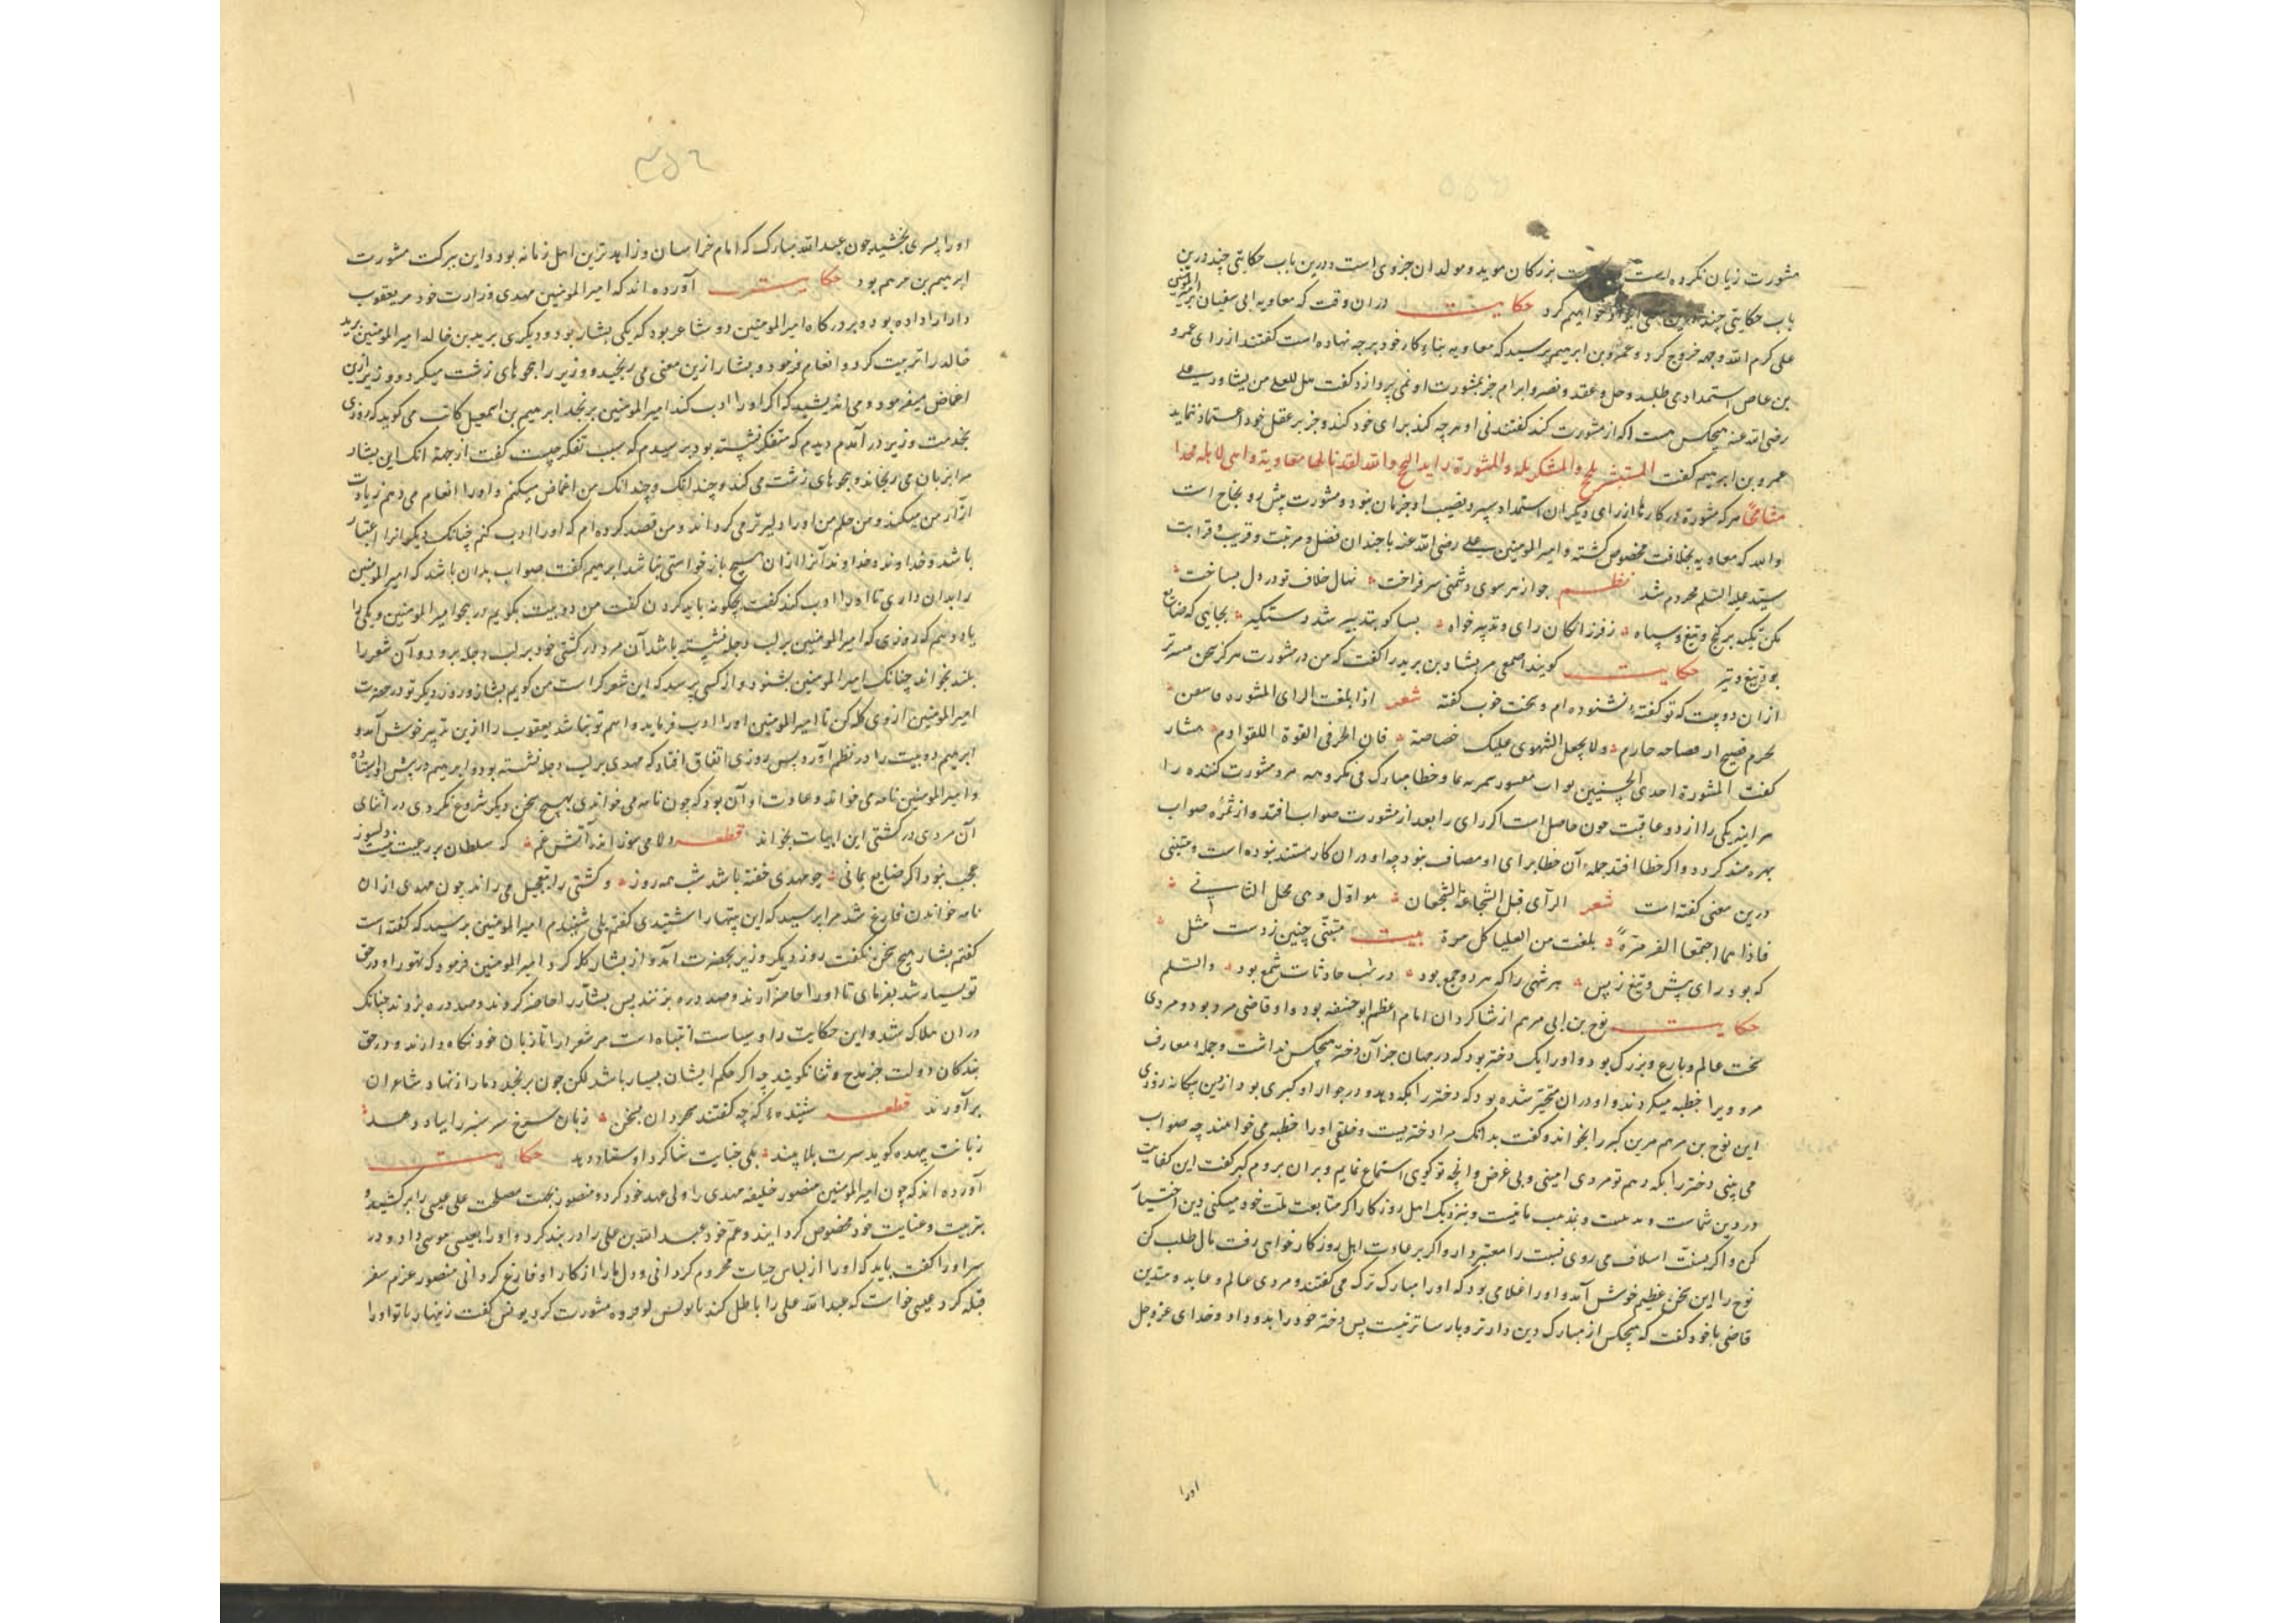 مشورت زیان نکرده است بزرکان موید و مولدان جزوی است و درین باب حکایتی چند درین
باب حکایتی چند خواهیم کرد حکایت دران وقت که معاویه ابی سفیان بر امیرالمومنین
علی کرم الله وجهه خروج کرد و عمرو بن ابرهیم پرسید که معاویه بناء کار خود بر چه نهاده است کفتند از رای عمرو
بن عاص استمدادی طلبد و حل و عقد و نصر و ابرام جز بمشورت او نمی پردازد کفت هل للعلی من یشاور علی
رضی الله عنه هیچکس هست که از مشورت کند کفتند نی او هرچه کند برای خود کند و جز بر عقل خود اعتماد ننماید
عمرو بن ابرهیم کفت المستبشر و المشورة راید النجح والله لقد
هرکه مشورة در کارها از رای دیکران استمداد و نصیب او جز آن نبود و مشورت پیش رو نجاح است
والله که معاویه بخلافت مخصوص کشته و امیرالمومنین علی رضی الله عنه با چندان فضل و مرتبت و قربت و قرابت
سید علیه السلم محروم شد نظم جو از هر سوی دشمنی سر فراخت نهال خلاف تو در دل بساخت
مکن تکیه بر کنج و تیغ و سپاه ز فرزانکان رای و تدبیر خواه بسا کو بتدبیر شد دستکیر بجایی که ضایع
بود تیغ و تیر حکایت کویند اصمعی مر بشار بن برید را کفت که من در مشورت هرکز سخن
ازان دو بیت که تو کفته نشنوده ام و سخت خوب کفته شعر اذا بلغت الرای المشوره
بحزم فصیح او فصاحه حازم ولا یجعل الشهوی علیک خصاصة فان الحرفی القوة اللقوادم بشار
کفت المشورة احدی الحسنیین
هر آیند یکی را از دو عاقبت حاصل است اکر رای را بعد از مشورت صواب افتد و از ثمره صواب
بهره مند کردد و اکر خطا افتد جمله آن خطا برای او مضاف نبود چه او دران کار مستبد نبوده است و متنبی
درین معنی کفته است شعر الرآی قبل الشجاعة الشجعان هو اول و هی محل الثانی
فاذا هما اجتمعا بلغت من العلیا کل مرة بیت متنبی چنین زدست مثل
که بود رای پیش و تیغ ز پس هر شهی را که هر دو جمع بود در شب حادثات شمع بود والسلم
حکایت نوح بن ابی مریم از شاکردان امام اعظم ابوحنیفه بود و او قاضی مرو بود و مردی
سخت عالم و بارع و بزرک بود و او را یک دختر بود که در جهان جز آن دختر هیچکس نداشت و جمله معارف
مرو ویرا خطبه میکردند و او دران متحیر شده بود که دختر را بکه دهد و در جوار او کبری بود ازین بیکانه روزی
این نوح بن مریم مرین کبر را بخواند و کفت بدانک مرا دختریست و خلقی او را خطبه می خواهند چه صواب
می بینی دختر را بکه دهم تو مردی امینی و بی غرض و انچه تو کویی استماع نمایم و بران بروم کبر کفت این کفایت
در دین شماست و بمذهب ما نیست و بنزدیک اهل روزکار اکر متابعت ملت خود میکنی دین اختیار
کن و اکر بسنت اسلاف می روی نسبت را معتبر دار و اکر بر عادت اهل روزکار خواهی رفت مال طلب کن
نوح را این سخن عظیم خوش آمد و او را غلامی بود که او را مبارک ترک می کفتند و مردی عالم و عابد و متدین
قاضی با خود کفت که هیچکس از مبارک دین دارتر و پارساتر نیست پس دختر خود را بدو داد و خدای عزوجل
اورا
اورا پسری بخشید چون عبدالله مبارک که امام خراسان و زاهدترین اهل زمانه بود و این ببرکت مشورت
ابرهیم بن مریم بود حکایت آورده اند که امیرالمومنین مهدی وزارت خود مر یعقوب
دارا را داده بود و بر درکاه امیرالمومنین دو شاعر بود که یکی بشار بود و دیکری برید بن خالد امیرالمومنین برید
خالد را تربیت کرد و انعام فرمود و بشار ازین معنی می رنجید و وزیر را هجوهای زشت میکرد و وزیر ازین
اغماض میفرمود و می اندیشید که اکر او را ادب کند امیرالمومنین برنجد ابرهیم بن اسمعیل کاتب می کوید که روزی
بخدمت وزیر در آمدم دیدم که متفکر نشسته بود پرسیدم که سبب تفکر چیست کفت از جهة انک این بشار
مرا بزبان می رنجاند و هجوهای زشت می کند و چندانک و چندانک من اغماض میکنم و اورا انعام می دهم زیادت
ازار من میکند و من حلم من اورا دلیرتر می کرداند و من قصد کرده ام که اورا ادب کنم چنانک دیکرانرا اعتبار
باشد و خداوند و خداوند آنرا ازان هیچ بازخواستی نباشد ابرهیم کفت صواب بدان باشد که امیرالمومنین
را بدان داری تا اورا ادب کند کفت چکونه باید کردن کفت من دو بیت بکویم در هجو امیرالمومنین و یکی را
یاد دهم که روزی که امیرالمومنین بر لب دجله نشسته باشد آن مرد در کشتی خود بر لب دجله برود و آن شعر را
بلند بخواند چنانک امیرالمومنین بشنود و از کسی پرسد که این شعر کراست من کویم بشار و روز دیکر تو در حضرت
امیرالمومنین ازوی کله کن تا امیرالمومنین اورا ادب فرماید و اسم تو نباشد یعقوب را ازین تدبیر خوش آمد و
ابرهیم دو بیت را در نظم آورد پس روزی اتفاق افتاد که مهدی بر لب دجله نشسته بود و ابرهیم در پیش او ایستاده
و امیرالمومنین نامه می خواند و عادت او آن بود که چون نامه می خواندی بهیچ سخن دیکر شروع نکردی در اثنای
آن مردی در کشتی این ابیات بخواند قطعه دلا می سوز اندر آتش غم که سلطان بر رعیت نیست دلسوز
عجب نبود اکر ضایع بمانی چو مهدی خفته باشد شب همه روز و کشتی را بتعجیل می راند چون مهدی ازان
نامه خواندن فارغ شد مرا پرسید که این بیتها را شنیدی کفتم بلی شنیدم امیرالمومنین پرسید که کفته است
کفتم بشار هیچ سخن نکفت روز دیکر وزیر بحضرت آمد و از بشار کله کرد امیرالمومنین فرمود که تهور او در حق
تو بسیار شد بفرمای تا اورا حاضر آرند و صد دره بزنند پس بشار را حاضر کردند و صد دره بزدند چنانک
دران هلاک شد و این حکایت را و سیاست انتباه است مر شعرا را تا زبان خود نکاه دارند و در حق
بندکان دولت جز مدح و ثنا نکویند چه اکر حکم ایشان بسیار باشد لکن چون برنجند دمار از نهاد شاعران
برآورند قطعه شنیده که چه کفتند بخردان بسخن زبان سرخ سر سبز را بباد دهد
زبانت بیهده کوید سرت بلا بیند یکی جنایت شاکرد اوستاد دهد حکایت
آورده اند که چون امیرالمومنین منصور خلیفه مهدی را ولی عهد خود کرد و منصور بجهت مصلحت علی عیسی را برکشید و
بتربیت و عنایت خود مخصوص کردانید و عم خود عبدالله بن علی را در بند کرد و اورا بعیسی موسی داد و در
سر اورا کفت باید که اورا از لباس حیات محروم کردانی و دل مارا از کار او فارغ کردانی منصور عزم سفر
قبله کرد عیسی خواست که عبدالله علی را باطل کند با یونس مشورت کرد یونس کفت زینهار تا تو اورا